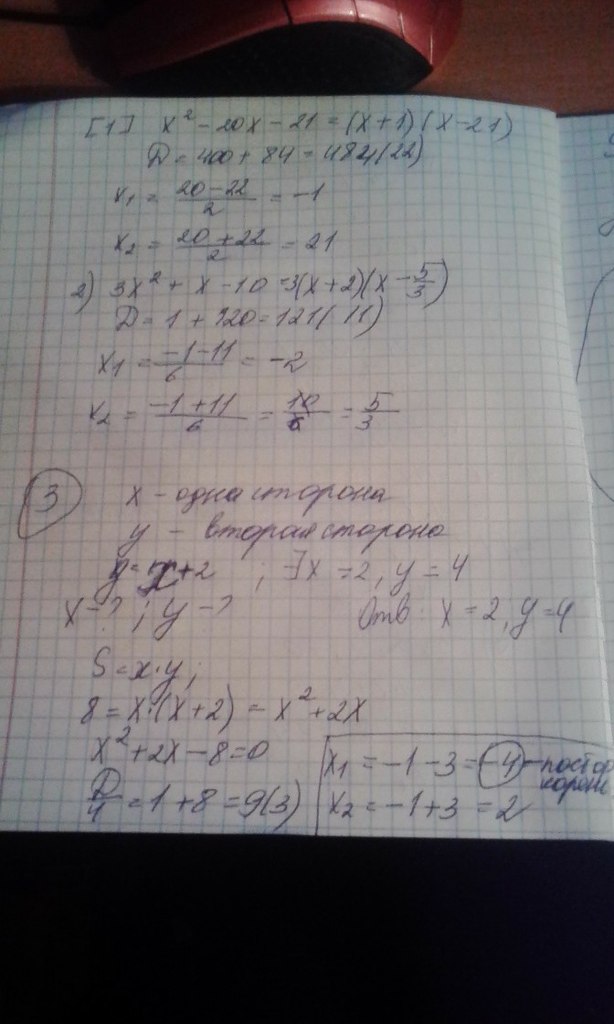 [1] x² - 20x - 21 = (x+1)(x-21)
D = 400 + 84 = 484(22)
x₁ = (20-22)/2 = -1
x₂ = (20+22)/2 = 21
2) 3x² + x - 10 = 3(x+2)(x - 5/3)
D = 1 + 120 = 121(11)
x₁ = (-1-11)/6 = -2
x₂ = (-1+11)/6 = 10/6 = 5/3
3 x - одна сторона
y - вторая сторона
y = x+2 ; ∃x = 2, y = 4
x - ? ; y - ? Отв: x = 2, y = 4
S = x·y;
8 = x·(x+2) = x² + 2x
x² + 2x - 8 = 0
D/4 = 1 + 8 = 9(3)
x₁ = -1 - 3 = -4 -
x₂ = -1 + 3 = 2